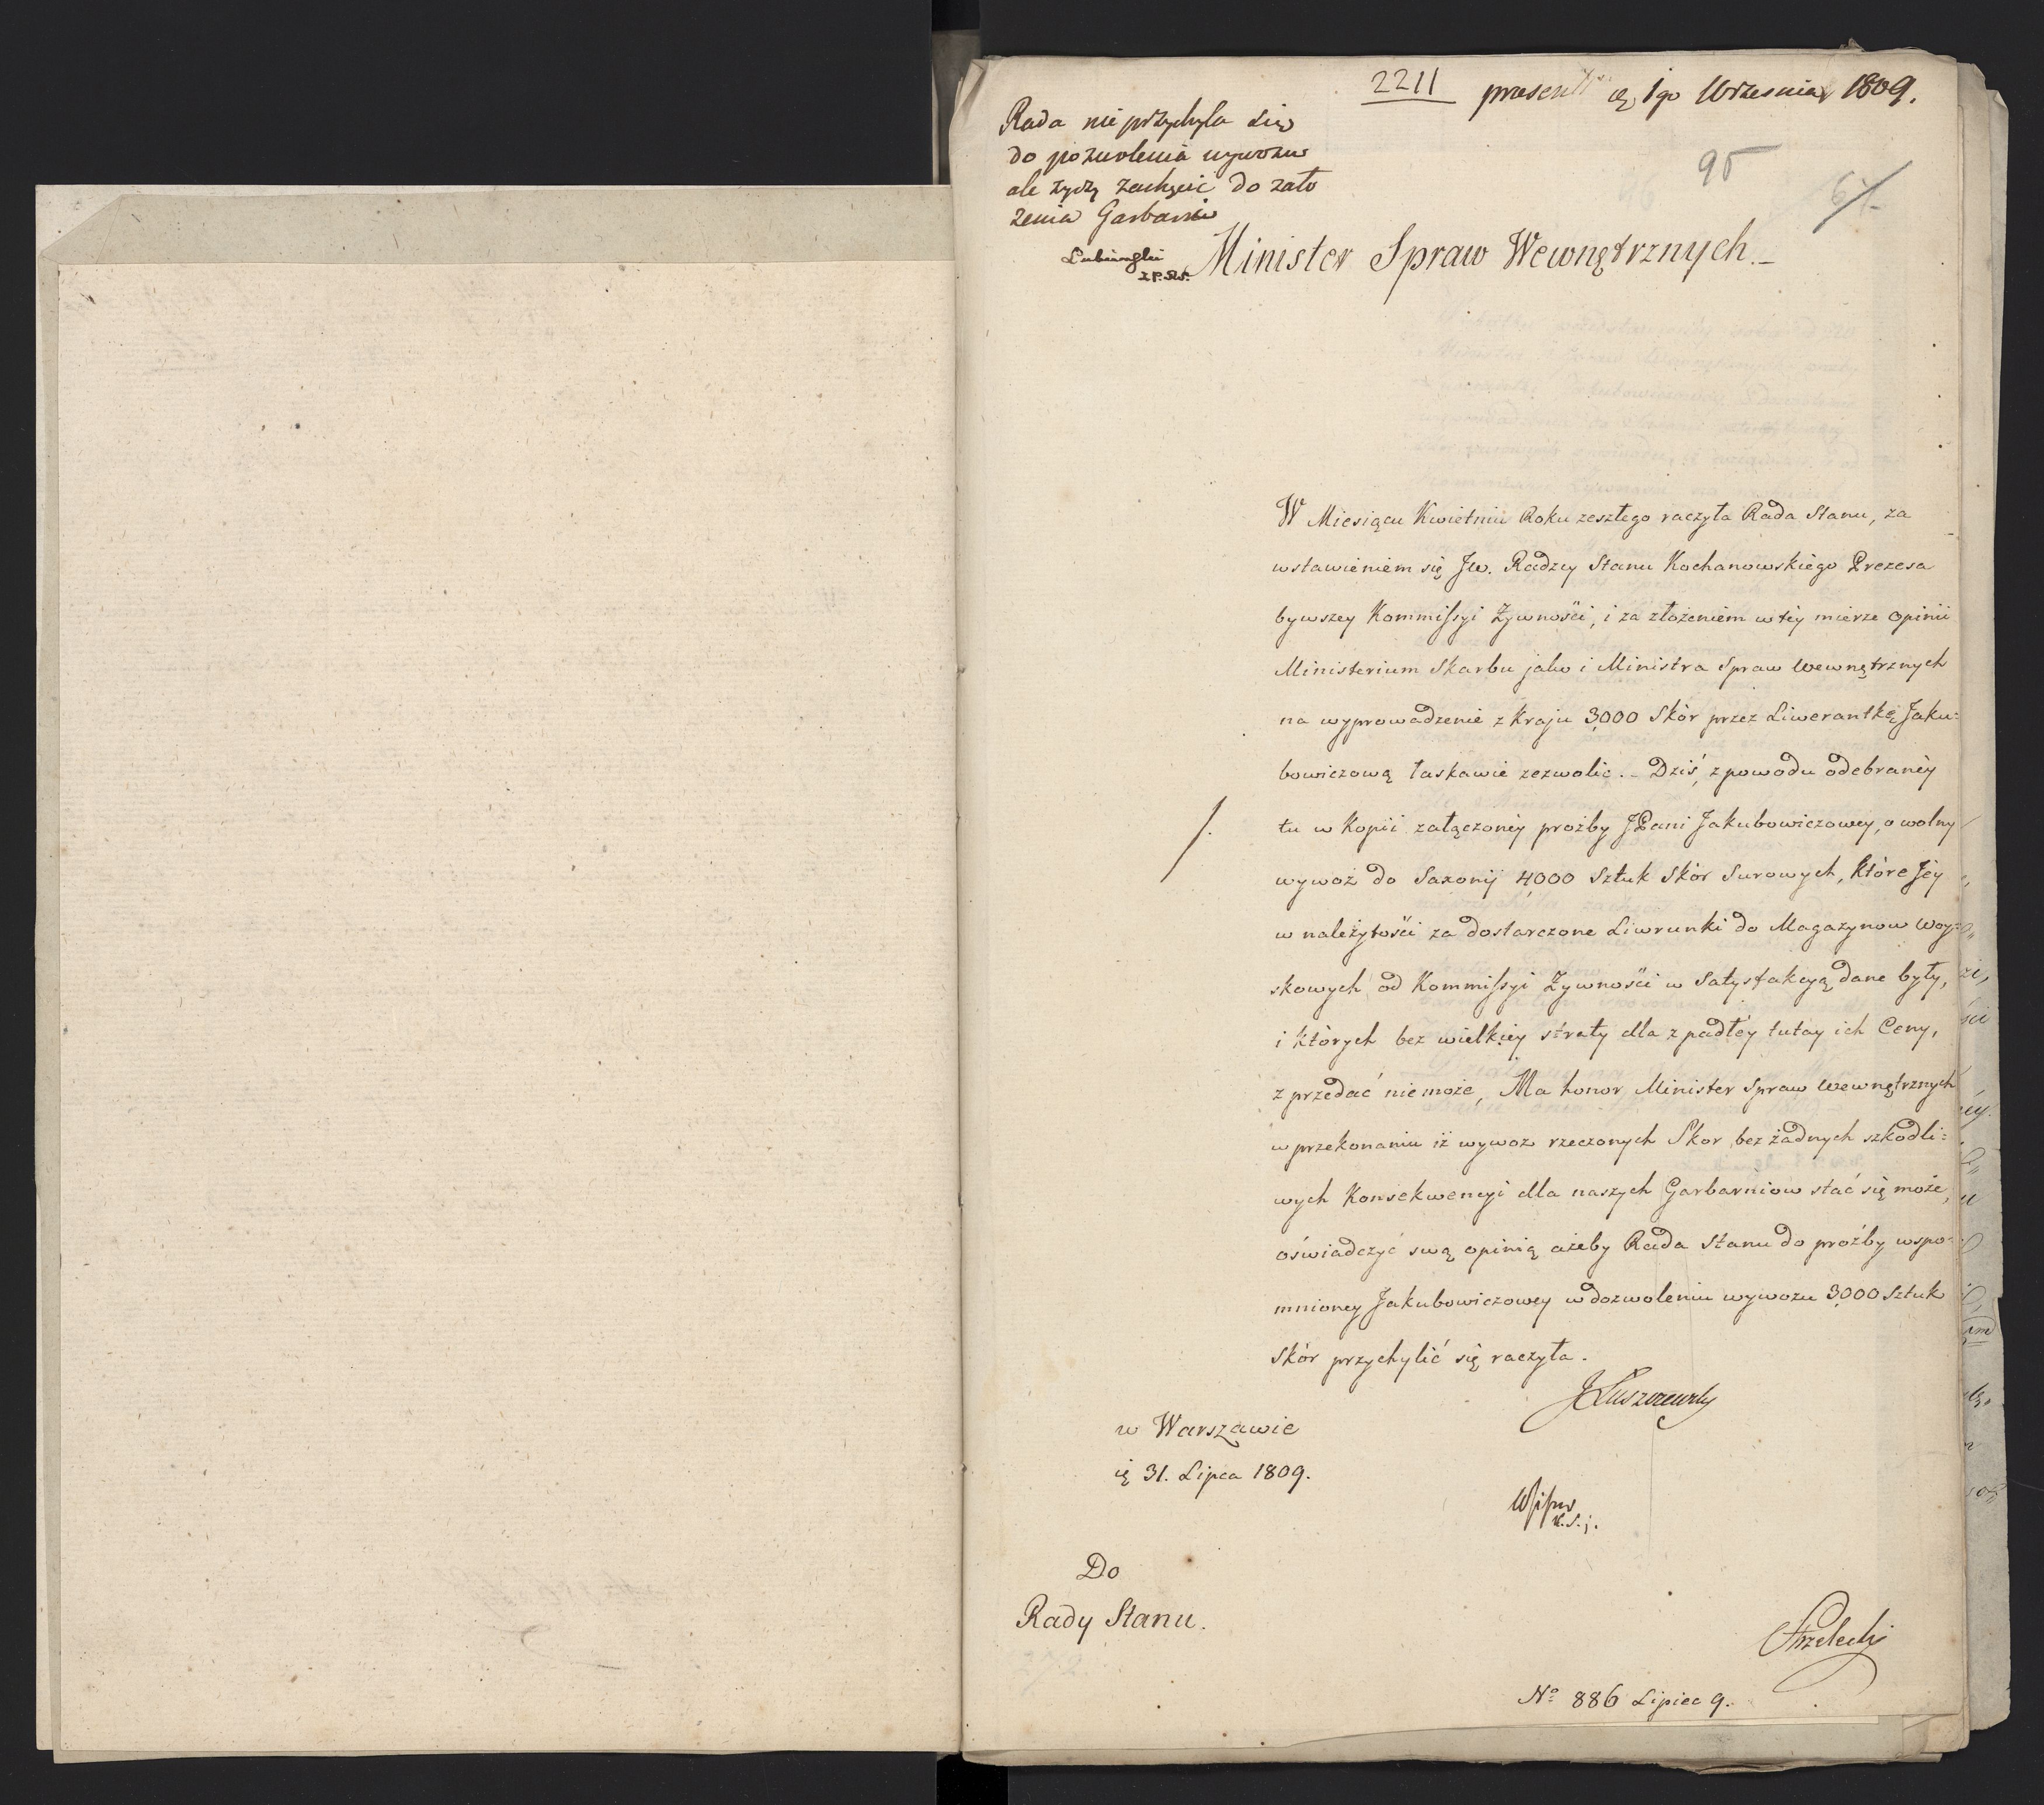 2211 present 1go Września 1809.
Rada nie przychyla się
do pozwolenia wywozu
ale życzy zachęcić do zało
żenia Garbarni
95
Minister Spraw Wewnętrznych.–
W Miesiącu Kwietniu Roku zeszłego raczyła Rada Stanu, za
wstawieniem się Jw. Radzcy Stanu Kochanowskiego Prezesa
bywszey Kommissyi Żywności, i za złożeniem w téy mierze Opinii
Ministerium Skarbu jako i Ministra Spraw Wewnętrznych
na wyprowadzenie z Kraju 3,000 Skór przez Liwerantkę Jaku=
bowiczową łaskawie zezwolić. – Dziś, z powodu odebranéy
tu w Kopii załączonéy prożby JPani Jakubowiczowey, o wolny
wywoz do Saxonij 4,000 Sztuk Skór Surowych, które Jéy
w należytości za dostarczone Liwrunki do Magazynow Woy=
skowych od Kommissyi Żywności w Satysfakcyą dane były,
i których bez wielkiéy straty dla zpadłéy tutay ich Ceny,
zprzedać nie może, Ma honor Minister Spraw Wewnętrznych
w przekonaniu iż wywoz rzeczonych Skor bez żadnych szkodli=
wych Konsekwencyi dla naszych Garbarniow stać się może,
oświadczyć swą opinią ażeby Rada Stanu do prożby wspo=
mnioney Jakubowiczowey w dozwoleniu wywozu 3,000 Sztuk
Skór przychylić się raczyła.
JŁuszczewski
w Warszawie
31. Lipca 1809.
Do
Rady Stanu.
Strzelecki
No 886 Lipiec 9.